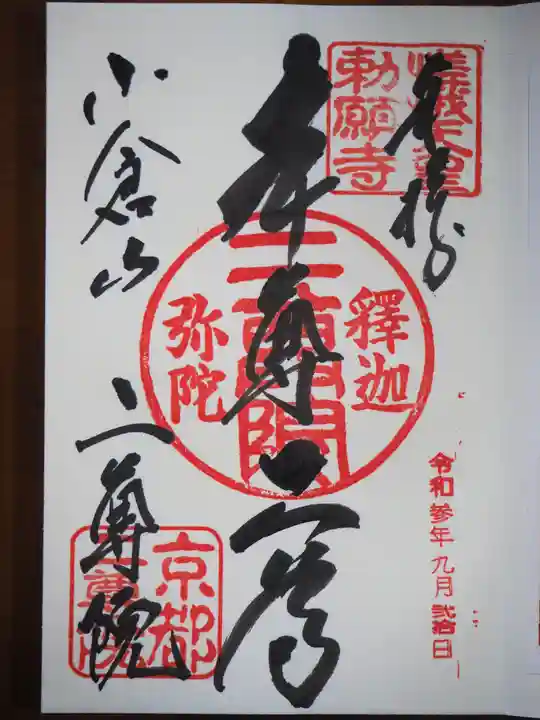 奉拝
嵯峨天皇
勅願寺
本尊二尊
釋迦
二尊院
弥陀
令和参年九月弐拾日
小倉山
二尊院
京都
二尊院